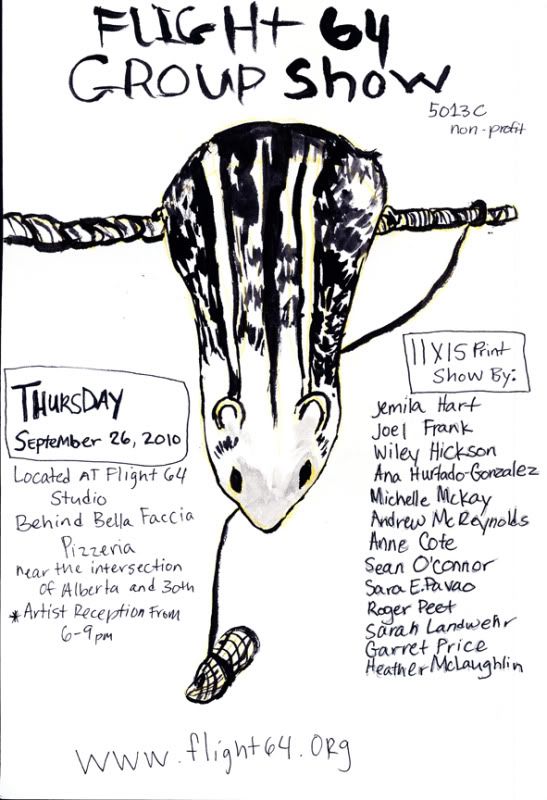 FLIGHt 64
GROUP Show
5013C
non-profit
THURSDAY
September 26, 2010
Located AT Flight 64
Studio
Behind Bella Faccia
Pizzeria
near the intersection
of Alberta and 30th
*Artist Reception From
6-9pm
11X15 Print
Show By:
Jemila Hart
Joel Frank
Wiley Hickson
Ana Hurtado-Gonzalez
Michelle McKay
Andrew McReynolds
Anne Cote
Sean O'connor
Sara E. Pavao
Roger Peet
Sarah Landwehr
Garret Price
Heather McLaughlin
www.flight64.org